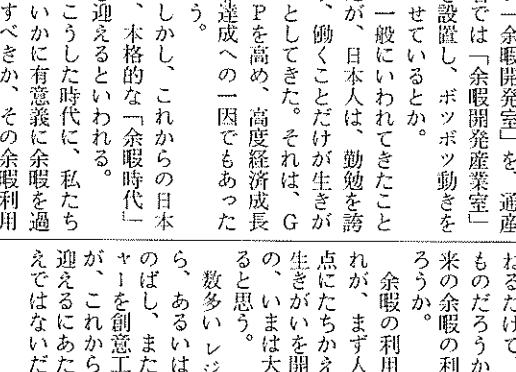 「余暇開発室」を、通産
では「余暇開発産業室」
設置し、ボツボツ動きを
せているとか。
一般にいわれてきたこと
が、日本人は、勤勉を誇
、働くことだけが生きが
としてきた。それは、G
Pを高め、高度経済成長
達成への一因でもあった
う。
しかし、これからの日本
、本格的な「余暇時代」
を迎えるといわれる。
こうした時代に、私たち
いかに有意義に余暇を過
すべきか、その余暇利用
ねるだけで
ものだろうか
来の余暇の利
ろうか。
余暇の利用
れが、まず人
点にたちかえ
生きがいを開
の、いまは大
ると思う。
数多いレジ
ら、あるいは
のばし、また
ャーを創意工
が、これから
迎えるにあた
えではないだ